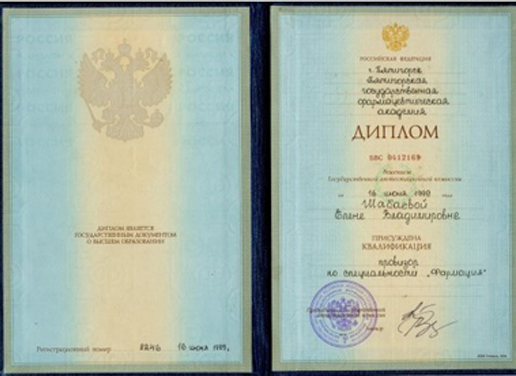 ДИПЛОМ ЯВЛЯЕТСЯ
ГОСУДАРСТВЕННЫМ ДОКУМЕНТОМ
О ВЫСШЕМ ОБРАЗОВАНИИ
Регистрационный номер 8246 16 июня 1999г.
РОССИЙСКАЯ ФЕДЕРАЦИЯ
г. Пятигорск
Пятигорская
государственная
фармацевтическая
академия
ДИПЛОМ
БВС 0612169
Решением
Государственной аттестационной комиссии
от 16 июня 1999 года
Шабаевой
Елене Владимировне
ПРИСУЖДЕНА
КВАЛИФИКАЦИЯ
провизор
по специальности „Фармация"
Председатель Государственной
аттестационной комиссии
Ректор